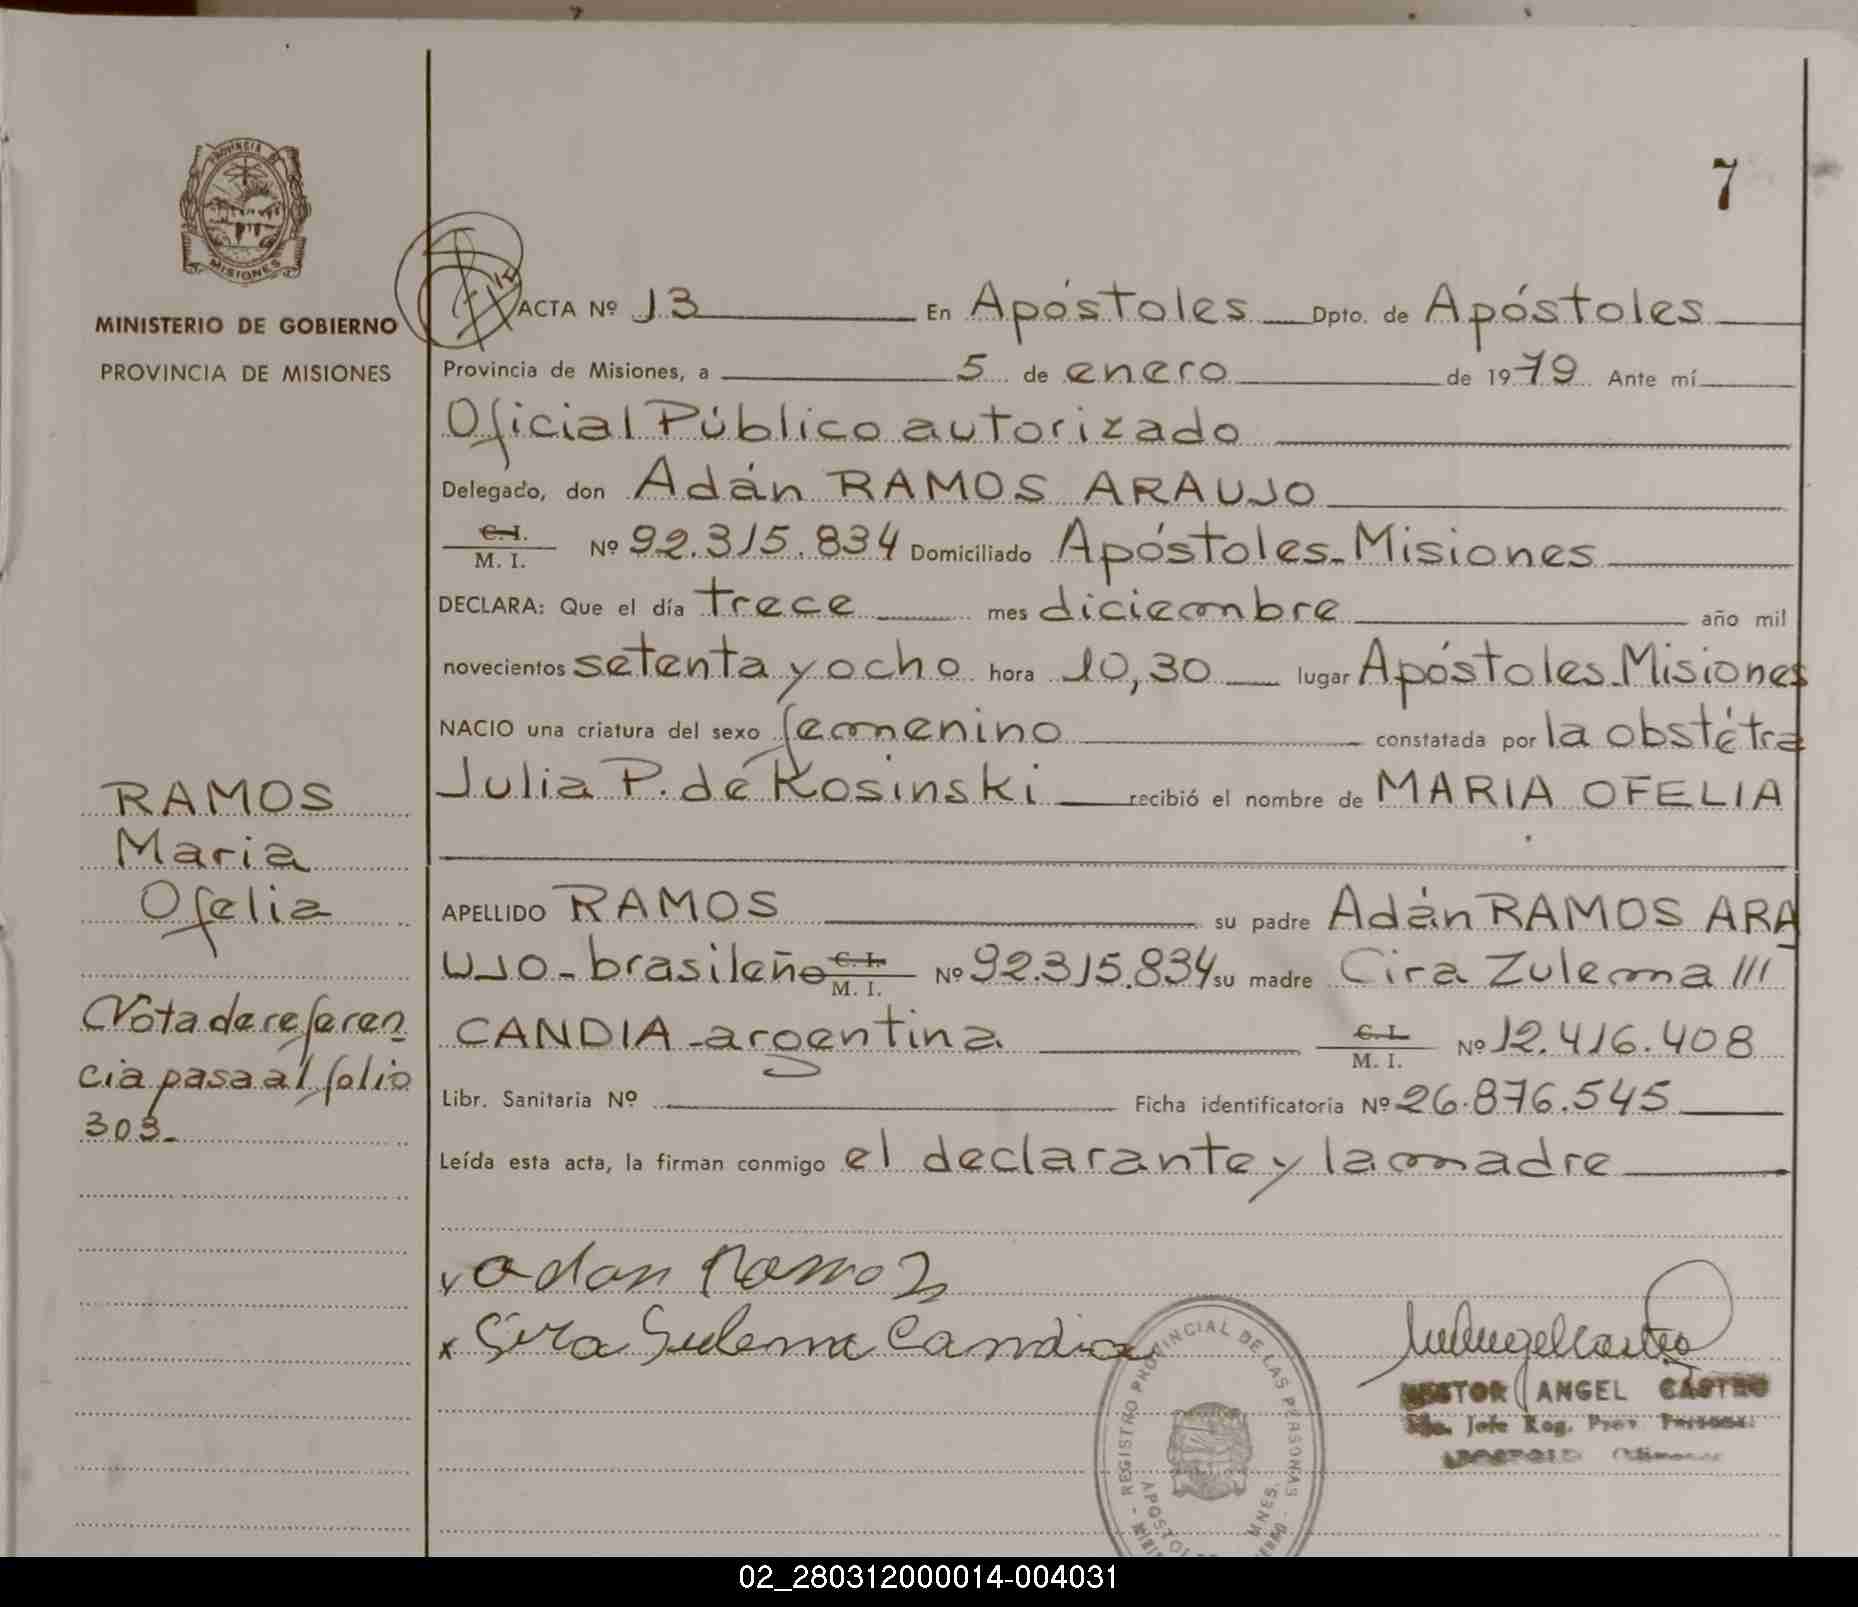 7
PROVINCIA DE
MISIONES
MINISTERIO DE GOBIERNO
PROVINCIA DE MISIONES
ACTA Nº 13 En Apóstoles Dpto. de Apóstoles
Provincia de Misiones, a 5 de enero de 1979 Ante mí
Oficial Público autorizado
Delegado, don Adán RAMOS ARAUJO
C. I.
M. I. Nº 92.315.834 Domiciliado Apóstoles-Misiones
DECLARA: Que el día trece mes diciembre año mil
novecientos setenta y ocho hora 10,30 lugar Apóstoles-Misiones
NACIO una criatura del sexo femenino constatada por la obstétra
Julia P. de Kosinski recibió el nombre de MARIA OFELIA
RAMOS
Maria
Ofelia
APELLIDO RAMOS su padre Adán RAMOS ARA
UJO-brasileño C. I. M. I. Nº 92.315.834 su madre Cira Zulema
CANDIA-argentina C. I. M. I. Nº 12.416.408
Libr. Sanitaria Nº Ficha identificatoria Nº 26.876.545
Leída esta acta, la firman conmigo el declarante y la madre
Nota de referen
cia pasa al folio
303-
x adan Ramos
x Sira Sulema Candia
NESTOR ANGEL CASTRO
Jefe Reg. Prov. Personas
REGISTRO PROVINCIAL DE LAS PERSONAS
MNES.
02_280312000014-004031